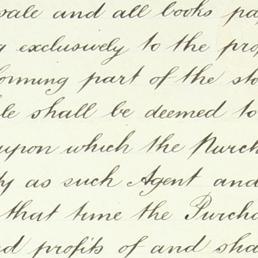 sale and all books pa
g exclusively to the pro
forming part of the sto
le shall be deemed to
upon which the Purch
y as such Agent and
that time the Purcha
d profits of and sha